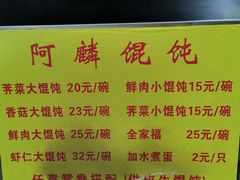 阿麟馄饨
荠菜大馄饨 20元/碗 鲜肉小馄饨15元/碗
香菇大馄饨 23元/碗 荠菜小馄饨15元/碗
鲜肉大馄饨 25元/碗 全家福 25元/碗
虾仁大馄饨 32元/碗 加水煮蛋 2元/只
任意鸳鸯搭配（供应生馄饨）